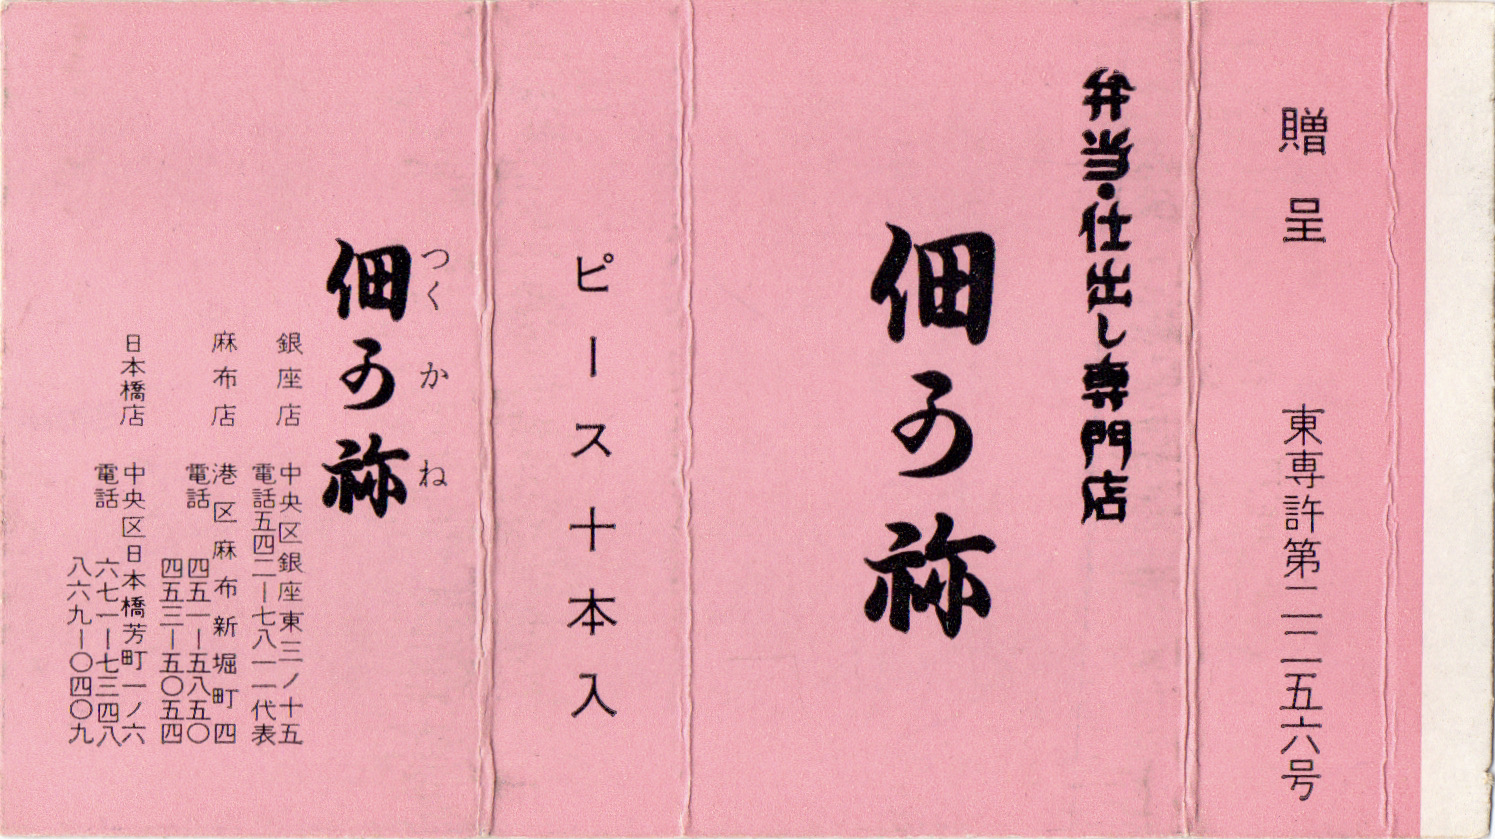 贈呈 東専許第二二五六号
弁当・仕出し専門店
佃可祢
ピース十本入
つくかね
佃可祢
銀座店 中央区銀座東三ノ十五
電話五四二―七八一一代表
麻布店 港区麻布新堀町四
電話 四五一―五八五〇
四五三―五〇五四
日本橋店 中央区日本橋芳町一ノ六
電話 六七一―七三四八
八六九―〇四〇九